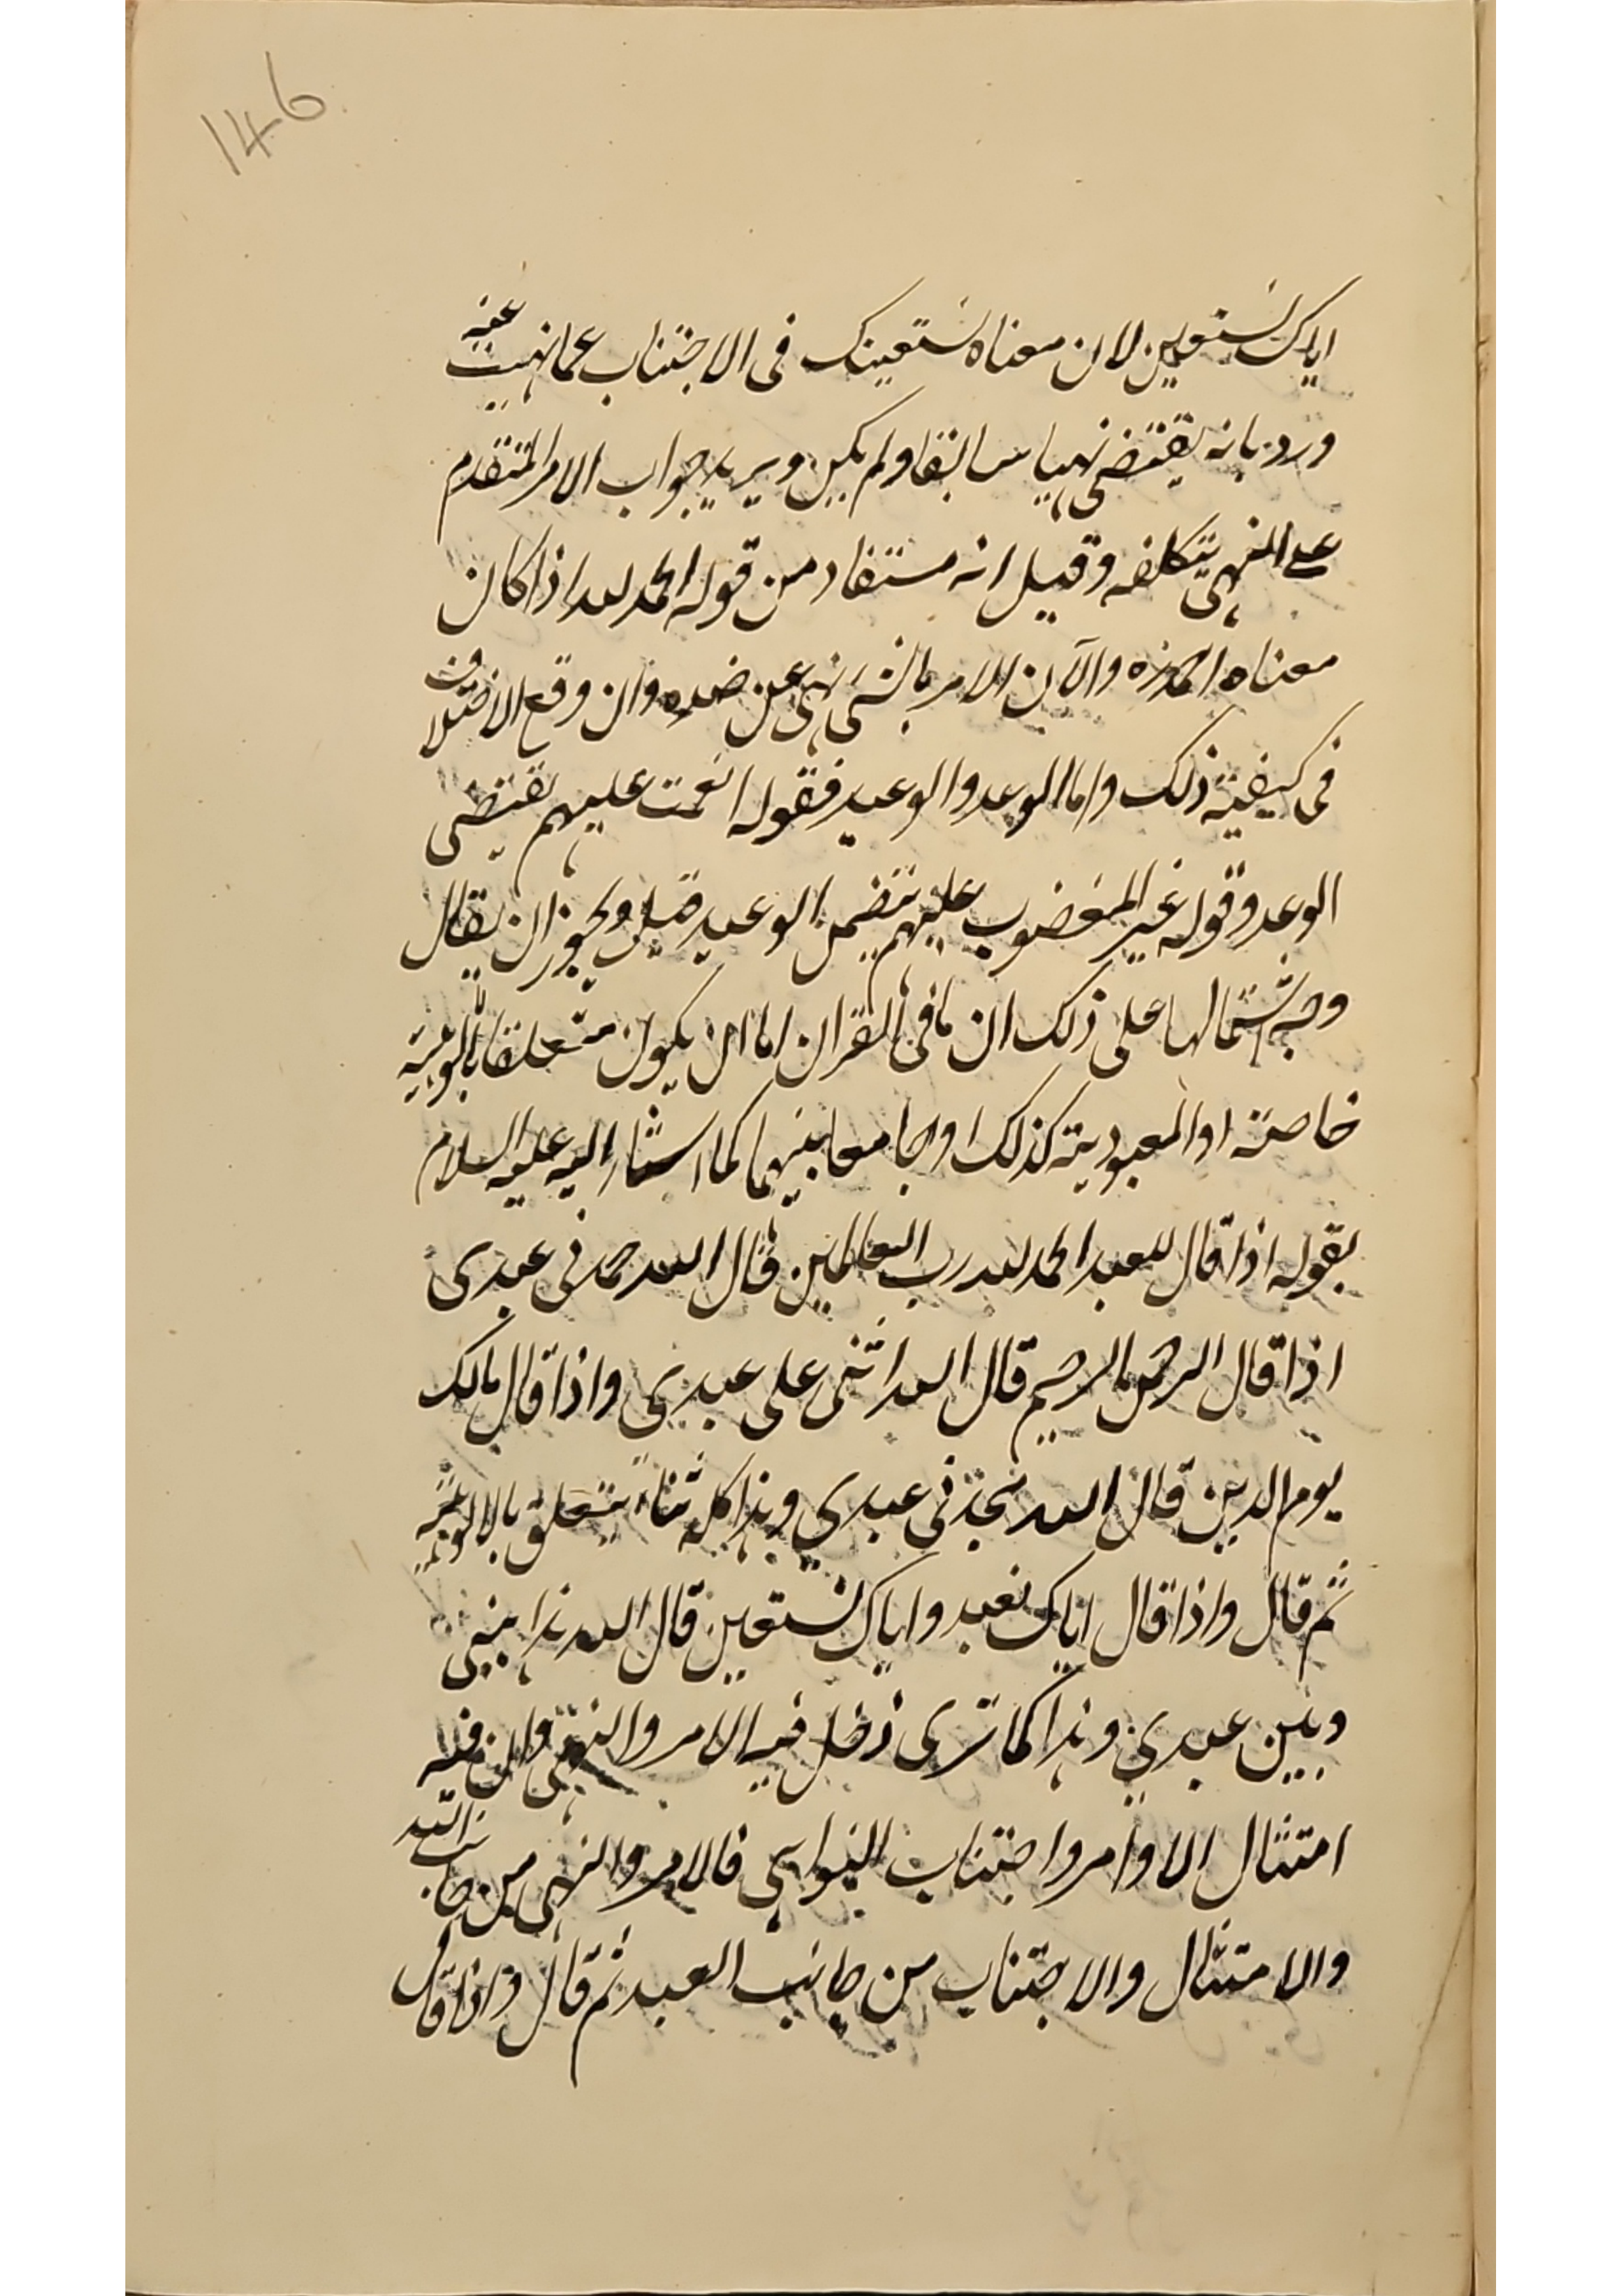 146
اياك نستعين لان معناه نستعينك فى الاجتناب عما نهيت عنه
ورد بانه يقتضى نهيا سابقا ولم يكن ويريد جواب الامر المتقدم
على النهى بتكلفه وقيل انه مستفاد من قوله الحمد لله اذا كان
معناه والآن الامر بالشئ نهى عن ضده وان وقع الاختلاف
فى كيفية ذلك واما الوعد والوعيد فقوله انعمت عليهم يقتضى
الوعد وقوله غير المغضوب عليهم يتضمن الوعيد قيل ويجوز ان يقال
وجه اشتمالها على ذلك ان ما فى القران اما ان يكون متعلقا بالالوهية
خاصة او المعبودية كذلك او جامعا بينهما كما اشار اليه عليه السلام
بقوله اذا قال العبد الحمد لله رب العالمين قال الله حمدنى عبدى
اذا قال الرحمن الرحيم قال الله اثنى على عبدي واذا قال مالك
يوم الدين قال الله مجدنى عبدي وهذا كله ثناء يتعلق بالالوهية
ثم قال واذا قال اياك نعبد واياك نستعين قال الله هذا بينى
وبين عبدي وهذا كما ترى دخل فيه الامر والنهى وان فيه
امتثال الاوامر واجتناب النواهى فالامر والنهى من جانب الله
والامتثال والاجتناب من جانب العبد ثم قال واذا قال